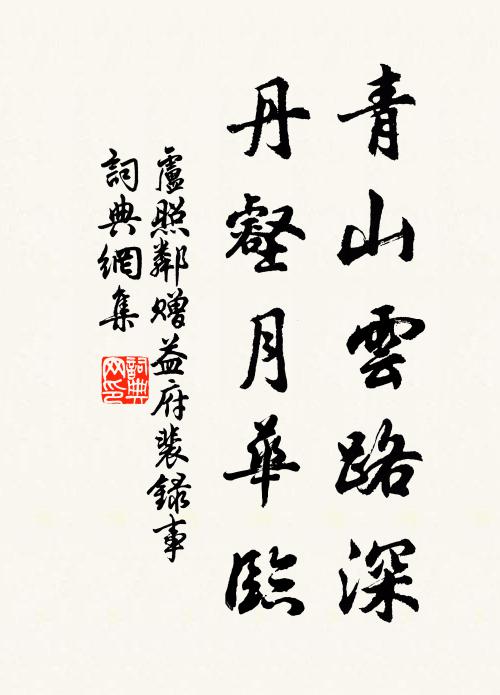 青山雲路深
丹壑月華臨
盧照鄰贈益府裴録事
詞典網集
詞典
网印